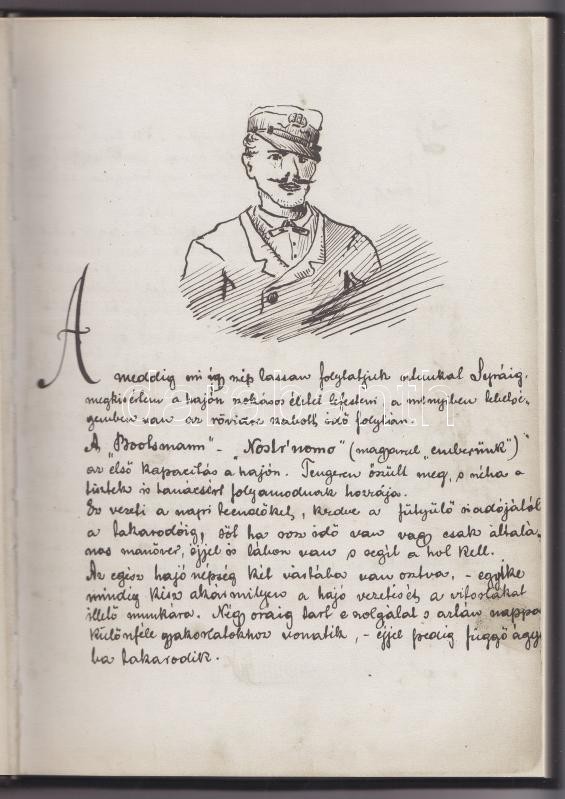 A
meddig mi így szép lassan folytatjuk utunkat
megkisérlem a hajón szokásos életet lefesteni a mennyiben lehetsé-
gemben van az rövidre szabott idő folytán.
A „Bootsmann" - „Nostr'uomo" (magyarul „emberünk")
az első kapacitás a hajón. Tengeren őszült meg, s néha a
tisztek is tanácsért folyamodnak hozzája.
Ez vezeti a napi teendőket, kezdve a fütyülő riadójától
a takarodóig, sőt ha rosz idő van vagy csak általá-
nos manőver, éjjel is lábon van s segit a hol kell.
Az egész hajó népség két vártába van osztva, - egyike
mindig kész akármilyen a hajó vezetését, a vitorlákat
illető munkára. Négy óráig tart e szolgálat s aztán nappal
különféle gyakorlatokhoz vonatik, - éjjel pedig függő ágy
ba takarodik.